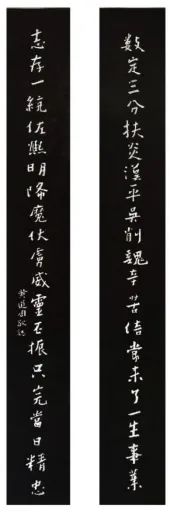 數定三分扶炎漢平吳削魏辛苦倍常未了一生事業
志存一統佐熙明降魔伏虜威靈丕振只完當日精忠
黃道周敬